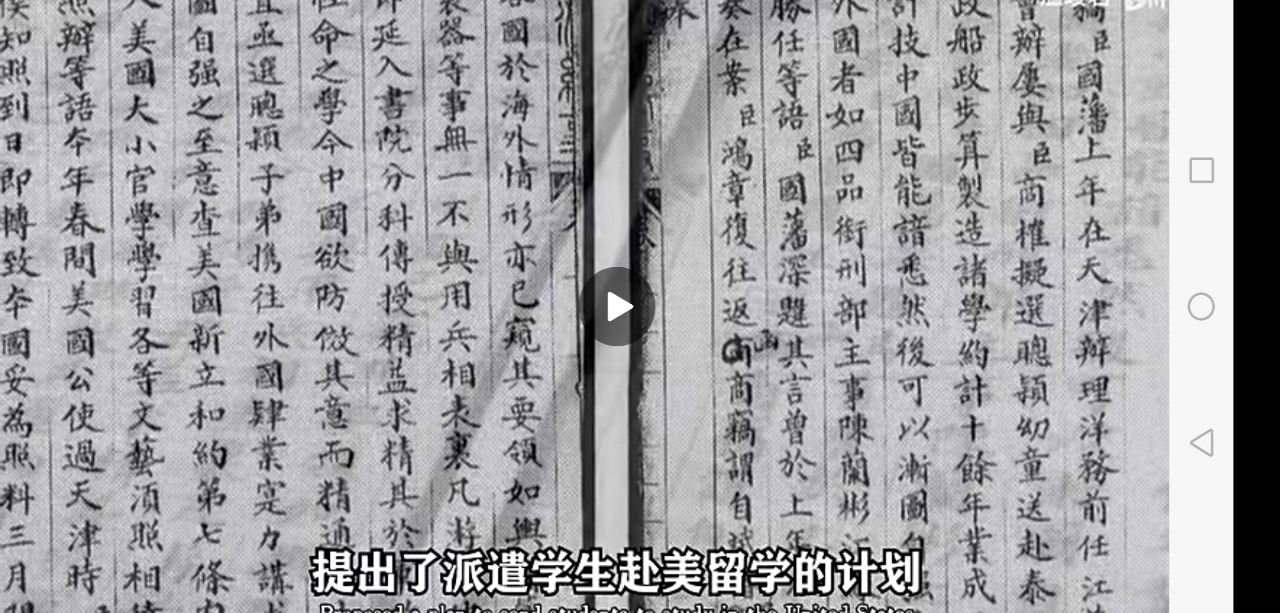 臣國藩上年在天津辦理洋務前任江
辦屢與臣商榷擬選聰穎幼童送赴泰
政船政步算製造諸學約計十餘年業成
技中國皆能諳悉然後可以漸圖自強
外國者如四品銜刑部主事陳蘭彬江
勝任等語臣國藩深韙其言曾於上年
奏在案臣鴻章復往返函商竊謂自
國於海外情形亦已窺其要領如輿
器等事無一不與用兵相表裏凡游
即延入書院分科傳授精益求精其於
性命之學今中國欲防倣其意而精通
宜亟選聰穎子弟携往外國肄業寔力講
圖自强之至意查美國新立和約第七條內
美國大小官學學習各等文藝湏照相
照辦等語本年春間美國公使過天津時
俟知照到日即轉致本國妥為照料三月
提出了派遣学生赴美留学的计划
Proposed a plan to send students to study in the United States